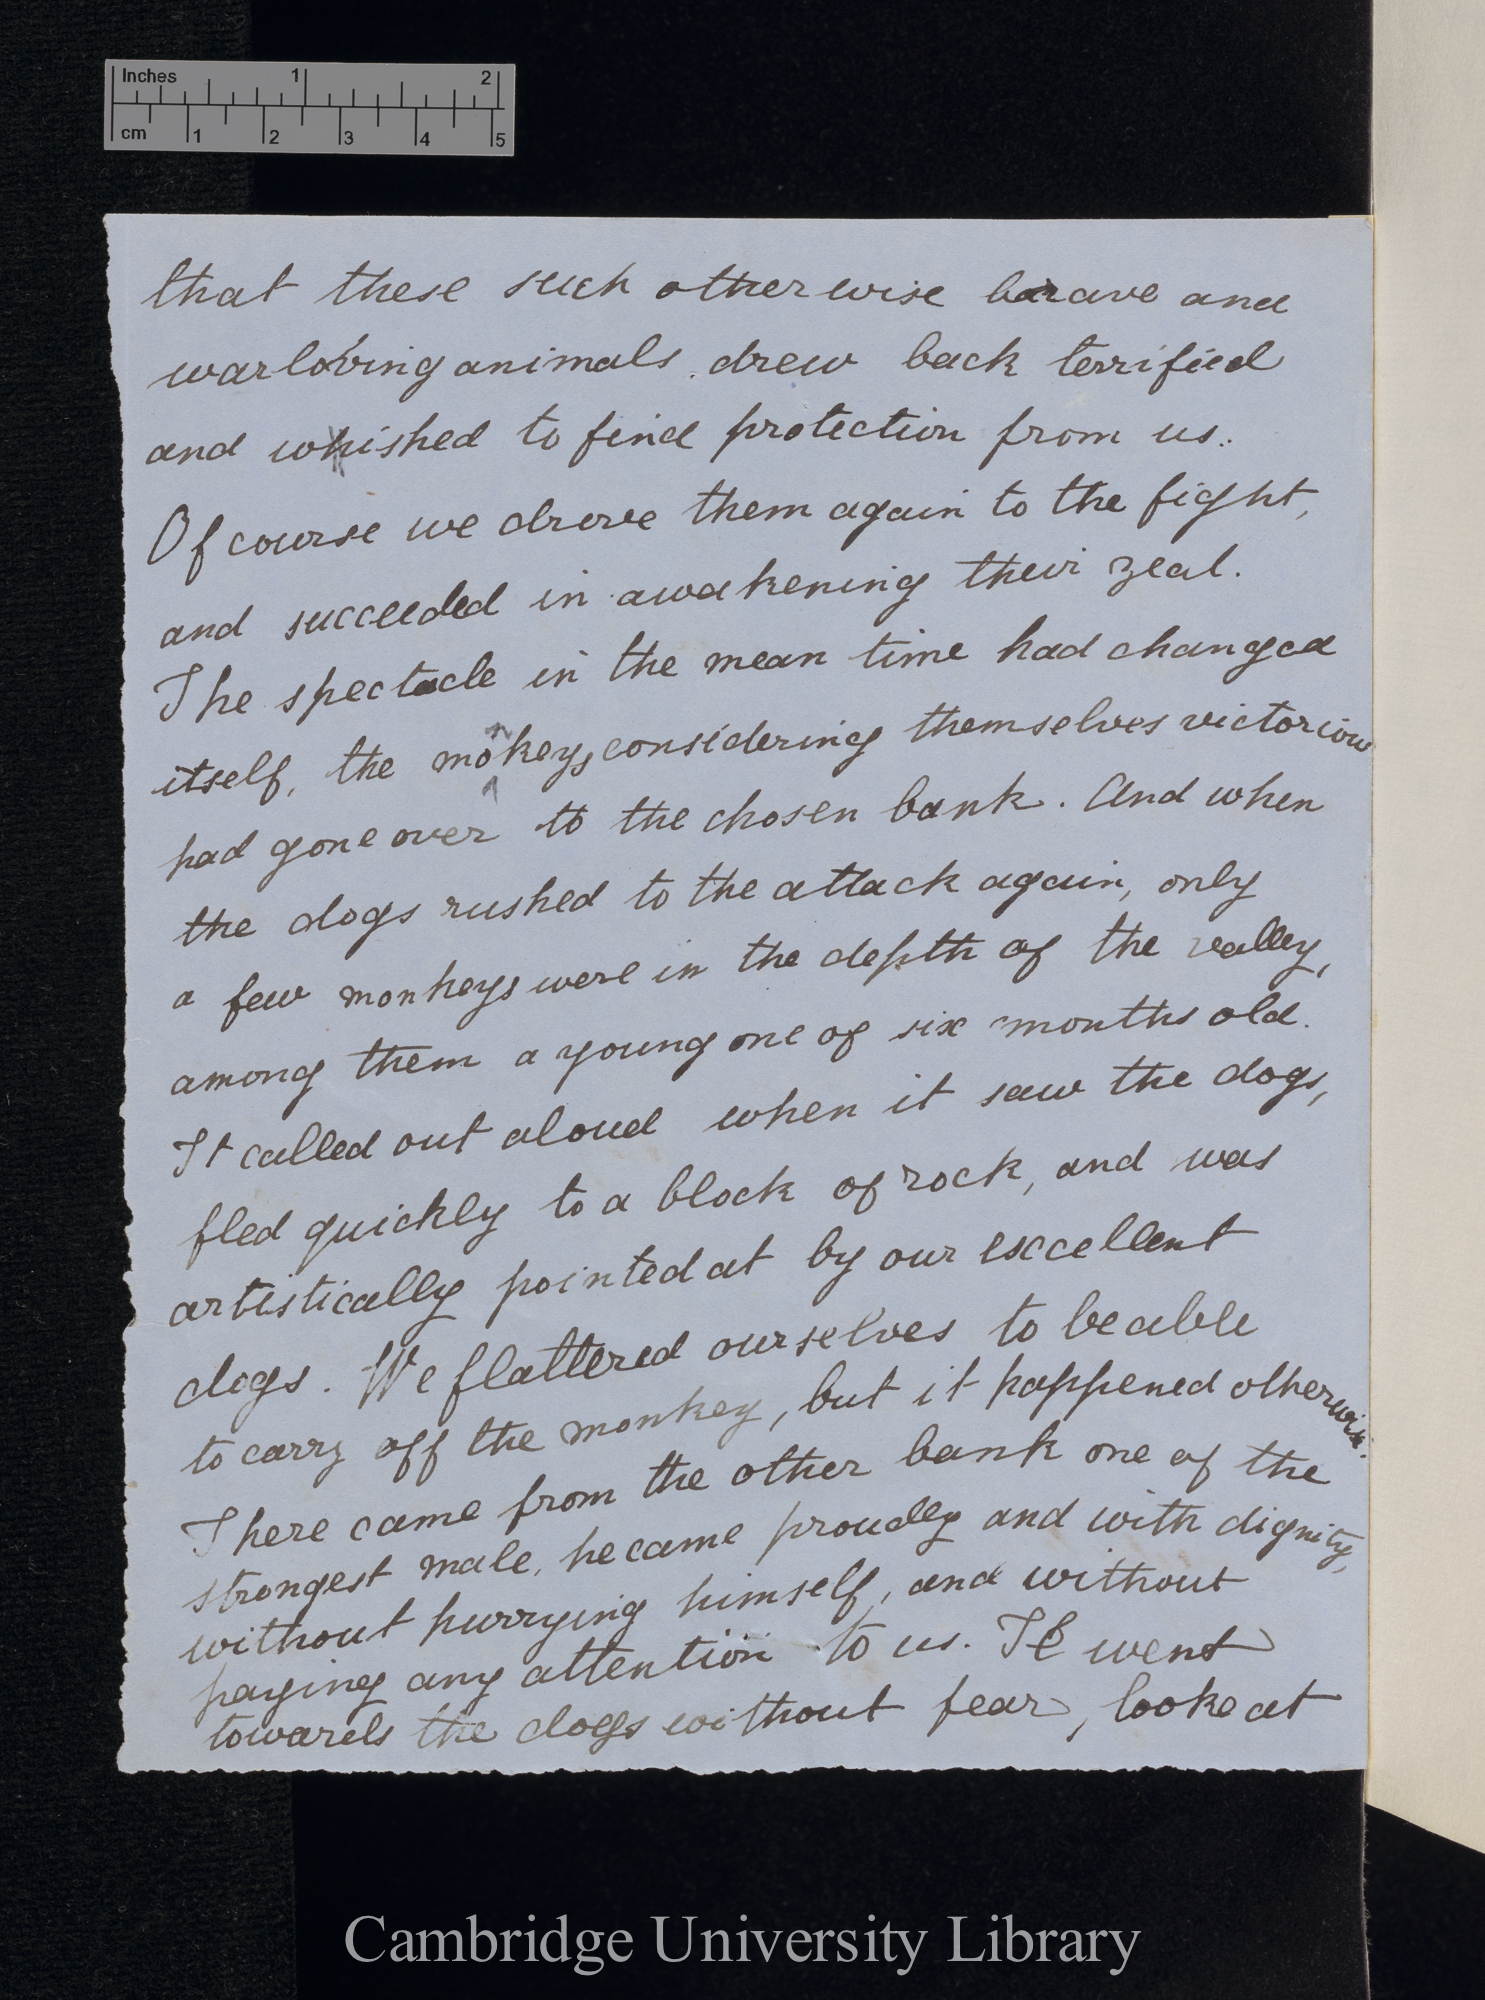 Inches 1 2
cm 1 2 3 4 5
that these such otherwise brave and
warloving animals drew back terrified
and whished to find protection from us.
Of course we drove them again to the fight,
and succeeded in awakening their zeal.
The spectacle in the mean time had changed
itself, the monkeys, considering themselves victoriou
had gone over to the chosen bank. And when
the dogs rushed to the attack again, only
a few monkeys were in the depth of the valley,
among them a young one of six months old.
It called out aloud when it saw the dogs,
fled quickly to a block of rock, and was
artistically pointed at by our excellent
dogs. We flattered ourselves to be able
to carry off the monkey, but it happened otherwise.
There came from the other bank one of the
strongest male, he came proudly and with dignity,
without hurrying himself, and without
paying any attention to us. It went
towards the dogs without fear, looke at
Cambridge University Library